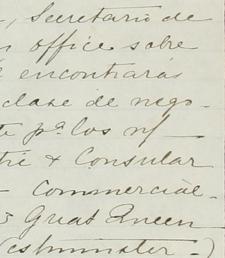 , Secretario de
office sobre
encontrarás
clase de nego-
pª los
& Consular
- commercial-
Great Queen
(estminster-)